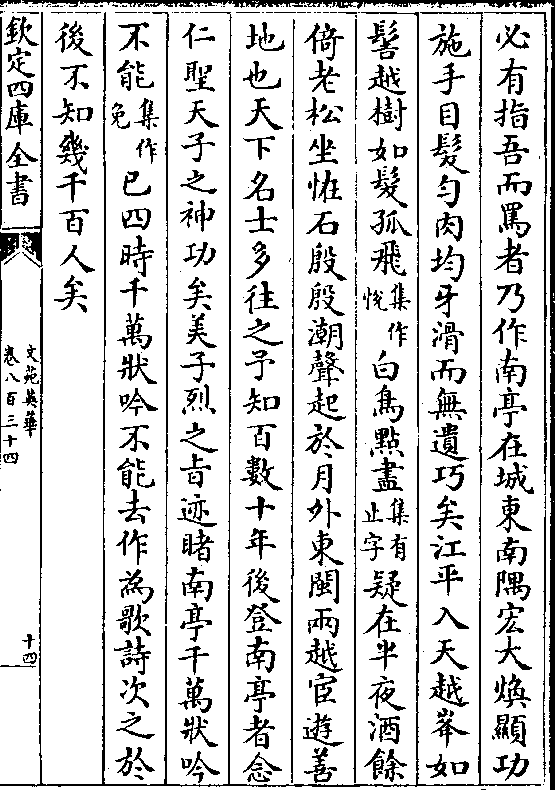 必有指吾而罵者乃作南亭在城東南隅宏大煥顯功
施手目髮勻肉均牙滑而無遺巧矣江平入天越峯如
髻越樹如髮孤飛集作恱白鳥點盡集有止字疑在半夜酒餘
倚老松坐恠石殷殷潮聲起於月外東閩兩越宦遊善
地也天下名士多往之予知百數十年後登南亭者念
仁聖天子之神功矣美子烈之旨迹睹南亭千萬狀吟
不能集作免已四時千萬狀吟不能去作為歌詩次之於
後不知幾千百人矣
欽定四庫全書
文苑英華
卷八百三十四
十四